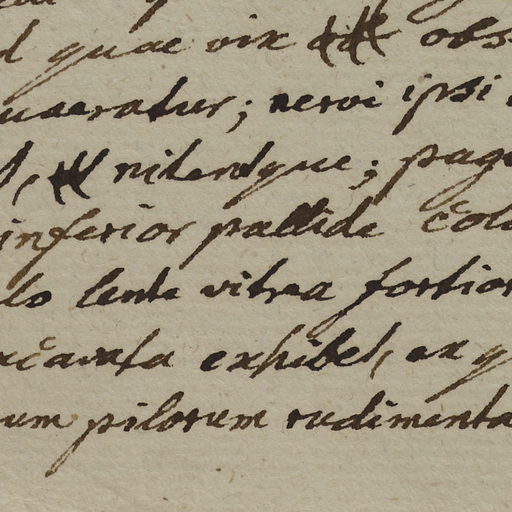 quae vix obs
uaeratur; nervi ipsi
nitentque; pag
inferior pallide colo
lo lente vitrea fortior
excavata exhibet, ex q
um pilorum rudimenta